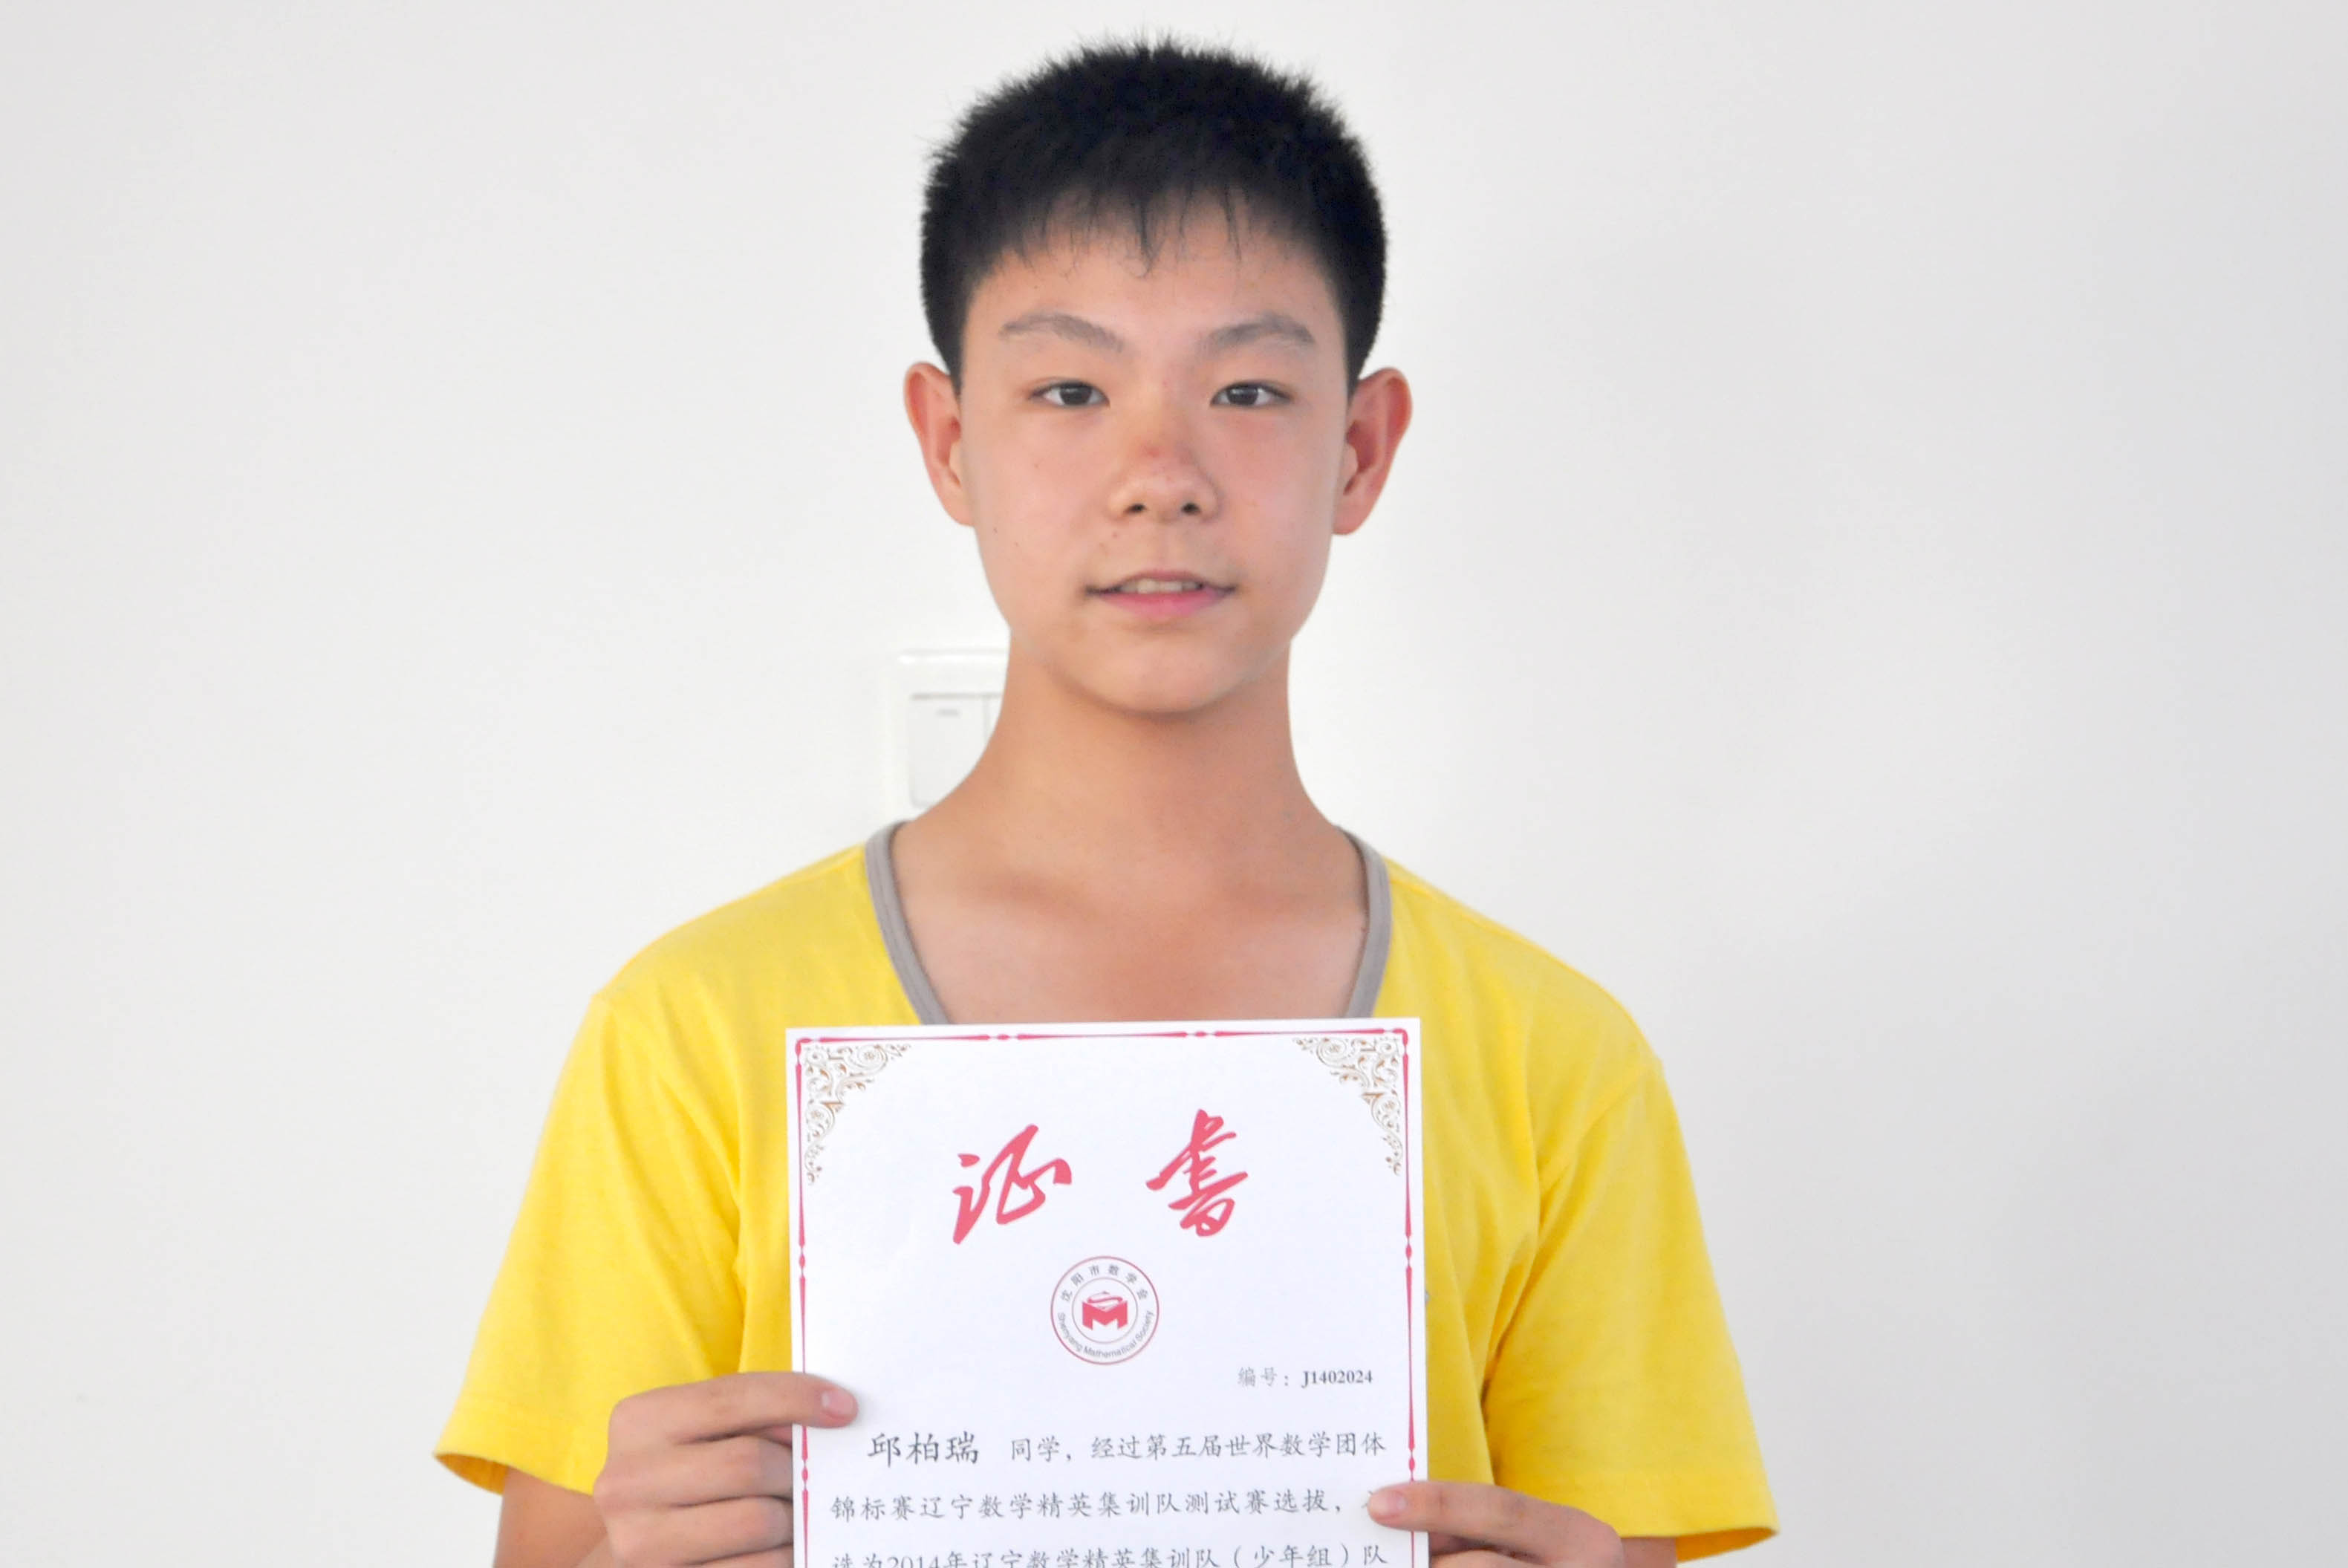 证书
沈阳市数学会
Shenyang Mathematical Society
编号：J1402024
邱柏瑞 同学，经过第五届世界数学团体
锦标赛辽宁数学精英集训队测试赛选拔，
选为2014年辽宁数学精英集训队（少年组）队